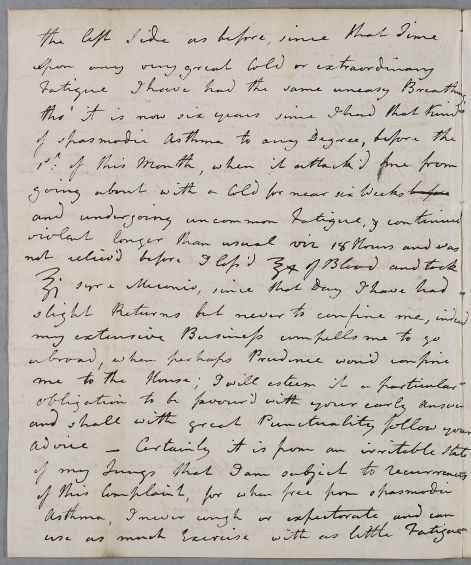 the left Side as before, since that Time
upon any very great Cold or extraordinary
Fatigue I have had the same uneasy Breathing
tho' it is now six years since I had that Kind
of spasmodic Asthma to any Degree, before the
1st. of this Month, when it attack'd me from
going about with a Cold for near six Weeks
and undergoing uncommon Fatigue, & continued
violent longer than usual viz 18 Hours and was
not reliev'd before I los'd of Blood and took
syr e Meconio, since that Day I have had
slight Returns but never to confine me, indeed
my extensive Business compells me to go
abroad, when perhaps Prudence would confine
me to the House; I will esteem it a particular
obligation to be favour'd with your early answer
and shall with great Punctuality follow your
advice — Certainly it is from an irritable State
of my Lungs that I am subject to recurrences
of this Complaint, for when free from spasmodic
Asthma, I never cough or expectorate and can
use as much Exercise with as little Fatigue